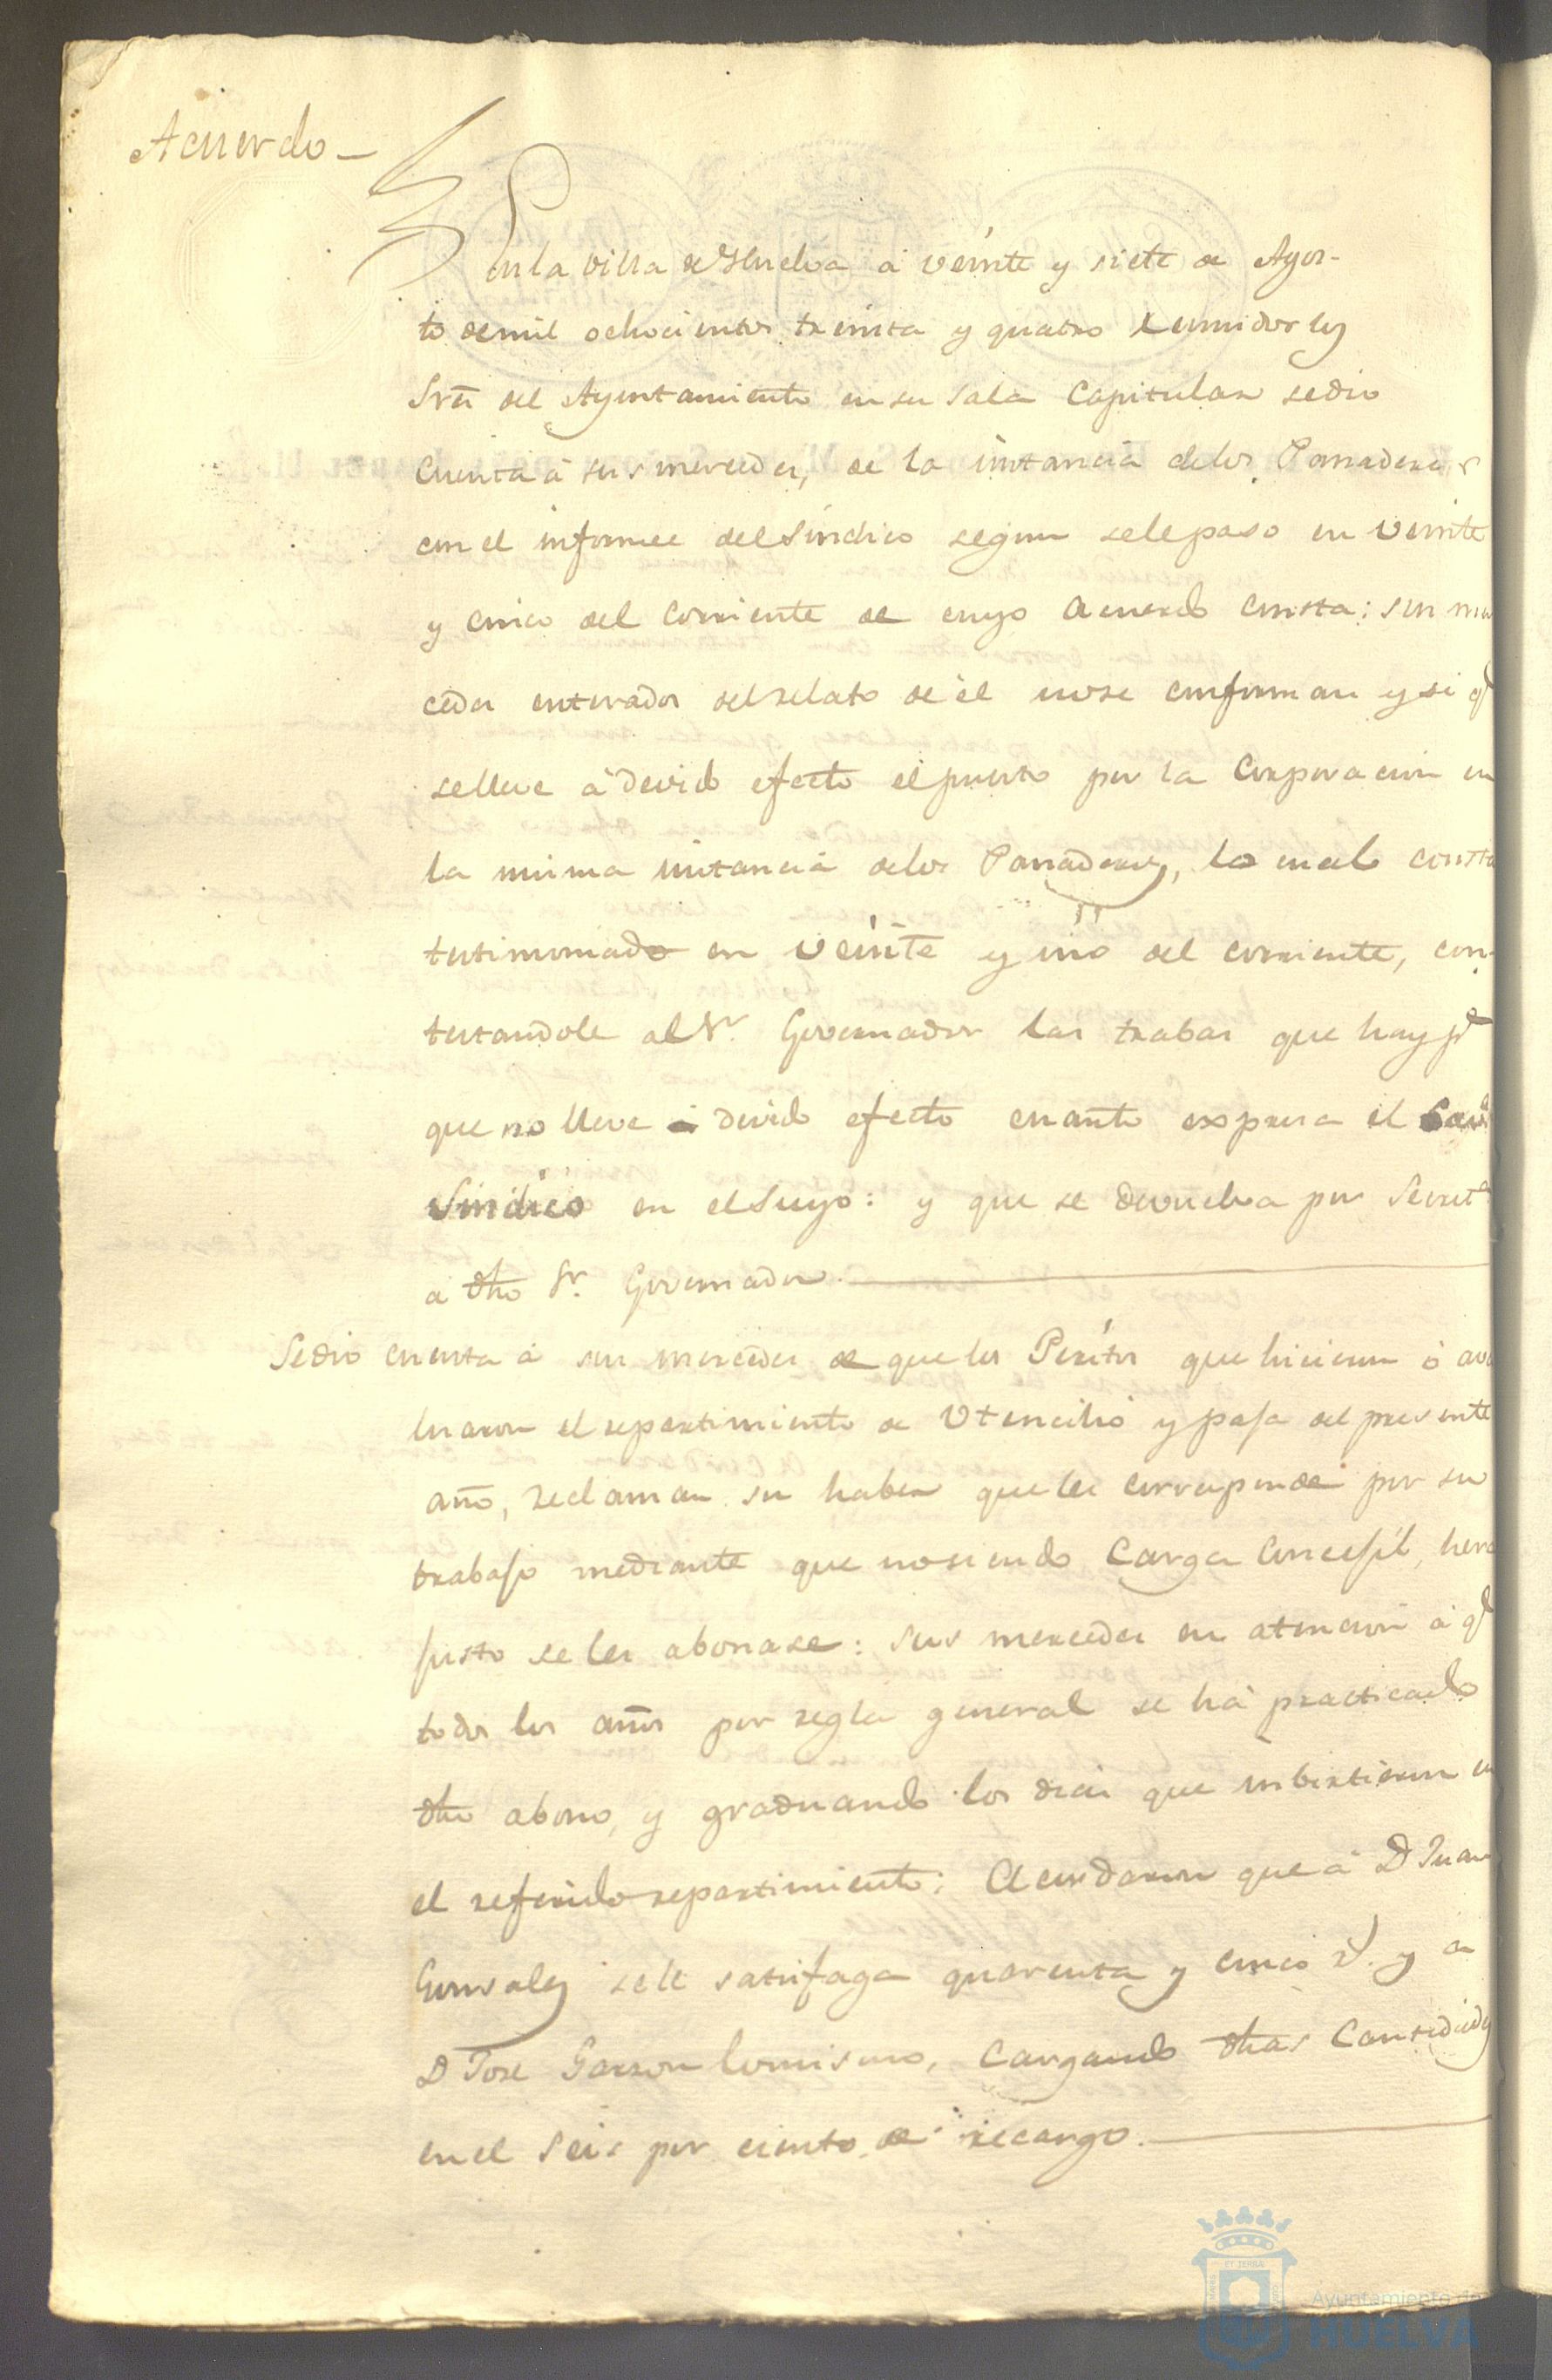 Acuerdo
En la villa de Huelva à veinte y siete de Agos-
to de mil ochocientos treinta y quatro reunidos los
Sres del Ayuntamiento en su sala Capitular sedio
cuenta à sus mercedes, de la instancia delos Panaderos
con el informe del Síndico segun selepaso en veinte
y cinco del corriente de cuyo acuerdo consta: sus mer
cedes enterados del relato de èl nose conforman y si qe
selleve à devido efecto el puesto por la Corporacion en
la misma instancia delos Panaderos, lo cual consta
testimoniado en veinte y uno del corriente, con-
testandole al Sr. Governador las trabas que hay pa
que no lleve à devido efecto cuanto expresa el
Síndico en el suyo: y que se devuelva por Secreta
a dho Sr. Governador.
Sedio cuenta à sus mercedes de que los Peritos que hicieron ò ava
luaron el repartimiento de Utencilio y paja del presente
año, reclaman su haber que les corresponde por su
trabajo mediante que nosiendo Carga Concejil, hera
justo se les abonase: sus mercedes en atencion à qe
todos los años por regla general se hà practicado
dho abono, y graduando los dias que imbirtieron en
el referido repartimiento: Acordaron que à D Juan
Gonsales sele satisfaga quarenta y cinco rs. y a
D Jose Garzon lo mismo, cargando dhas Cantidades
en el seis por ciento de recargo.
Ayuntamiento de
HUELVA